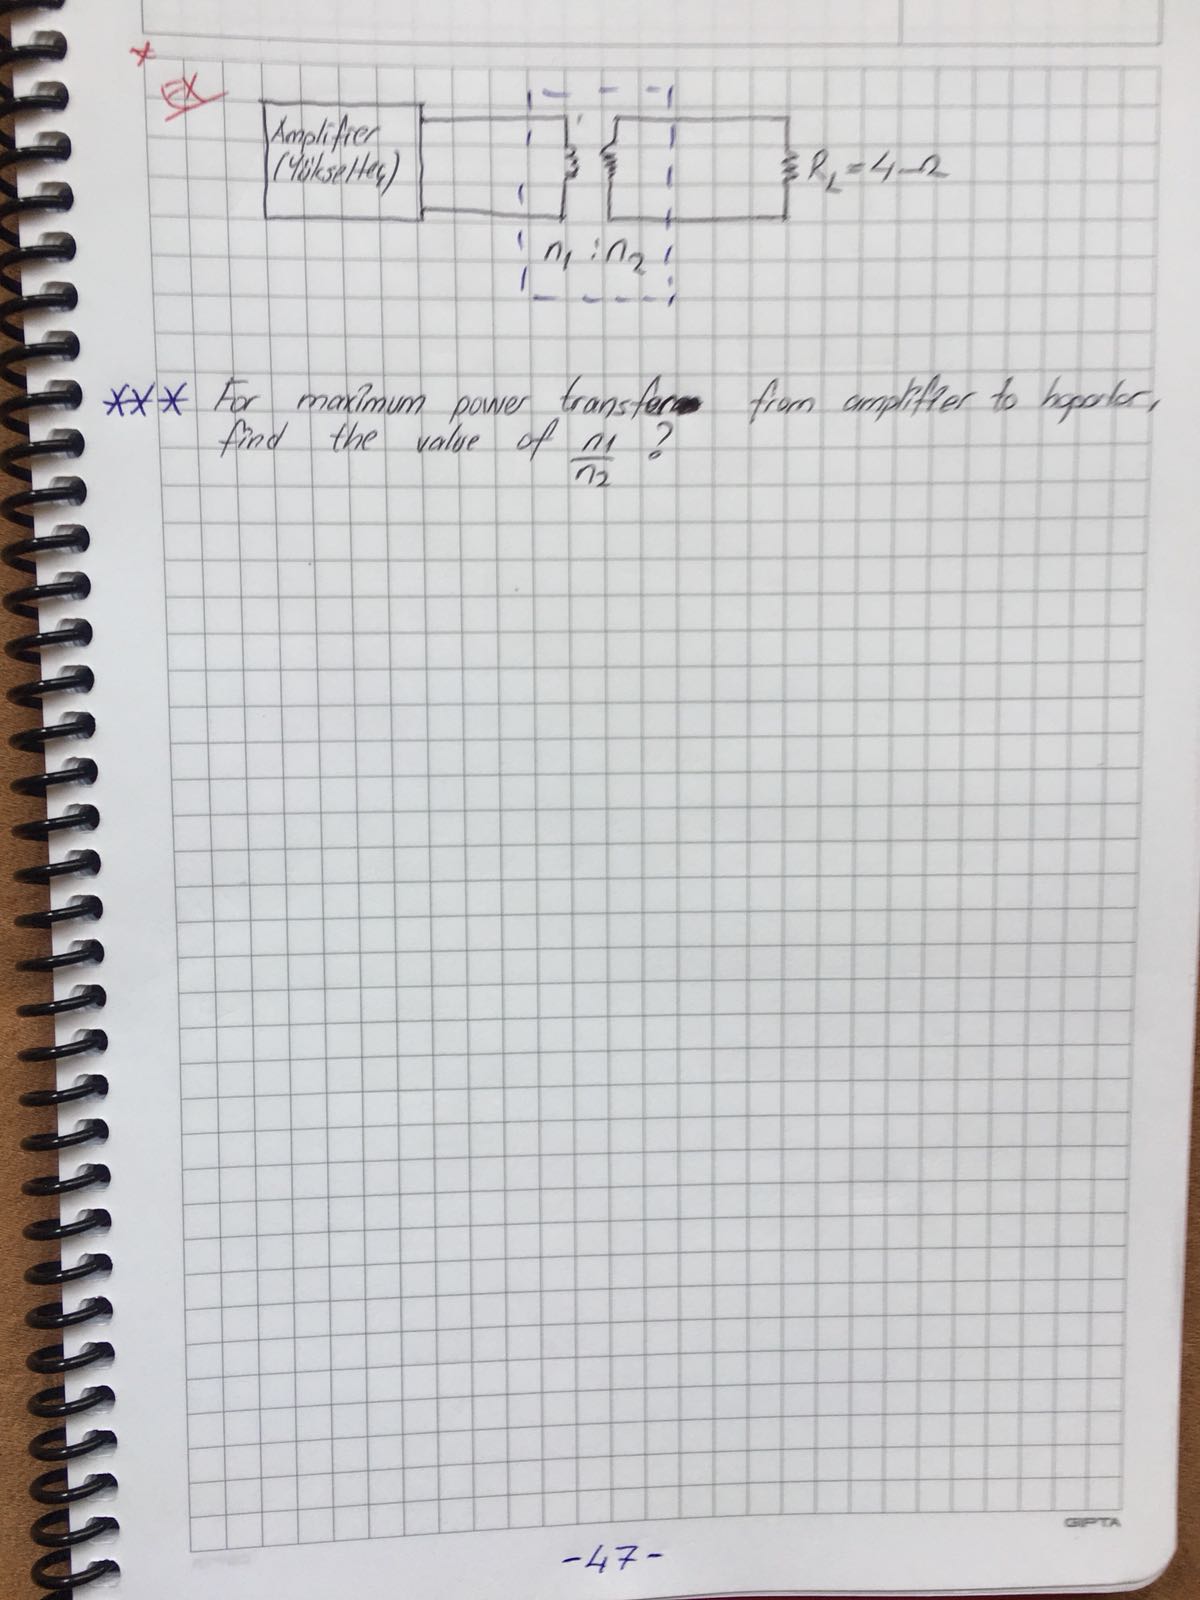 EX
Amplifier
(Yükselteç)
n1 : n2
RL = 4 Ω
*** For maximum power transfer from amplifier to hoporlor,
find the value of n1/n2 ?
GIPTA
-47-